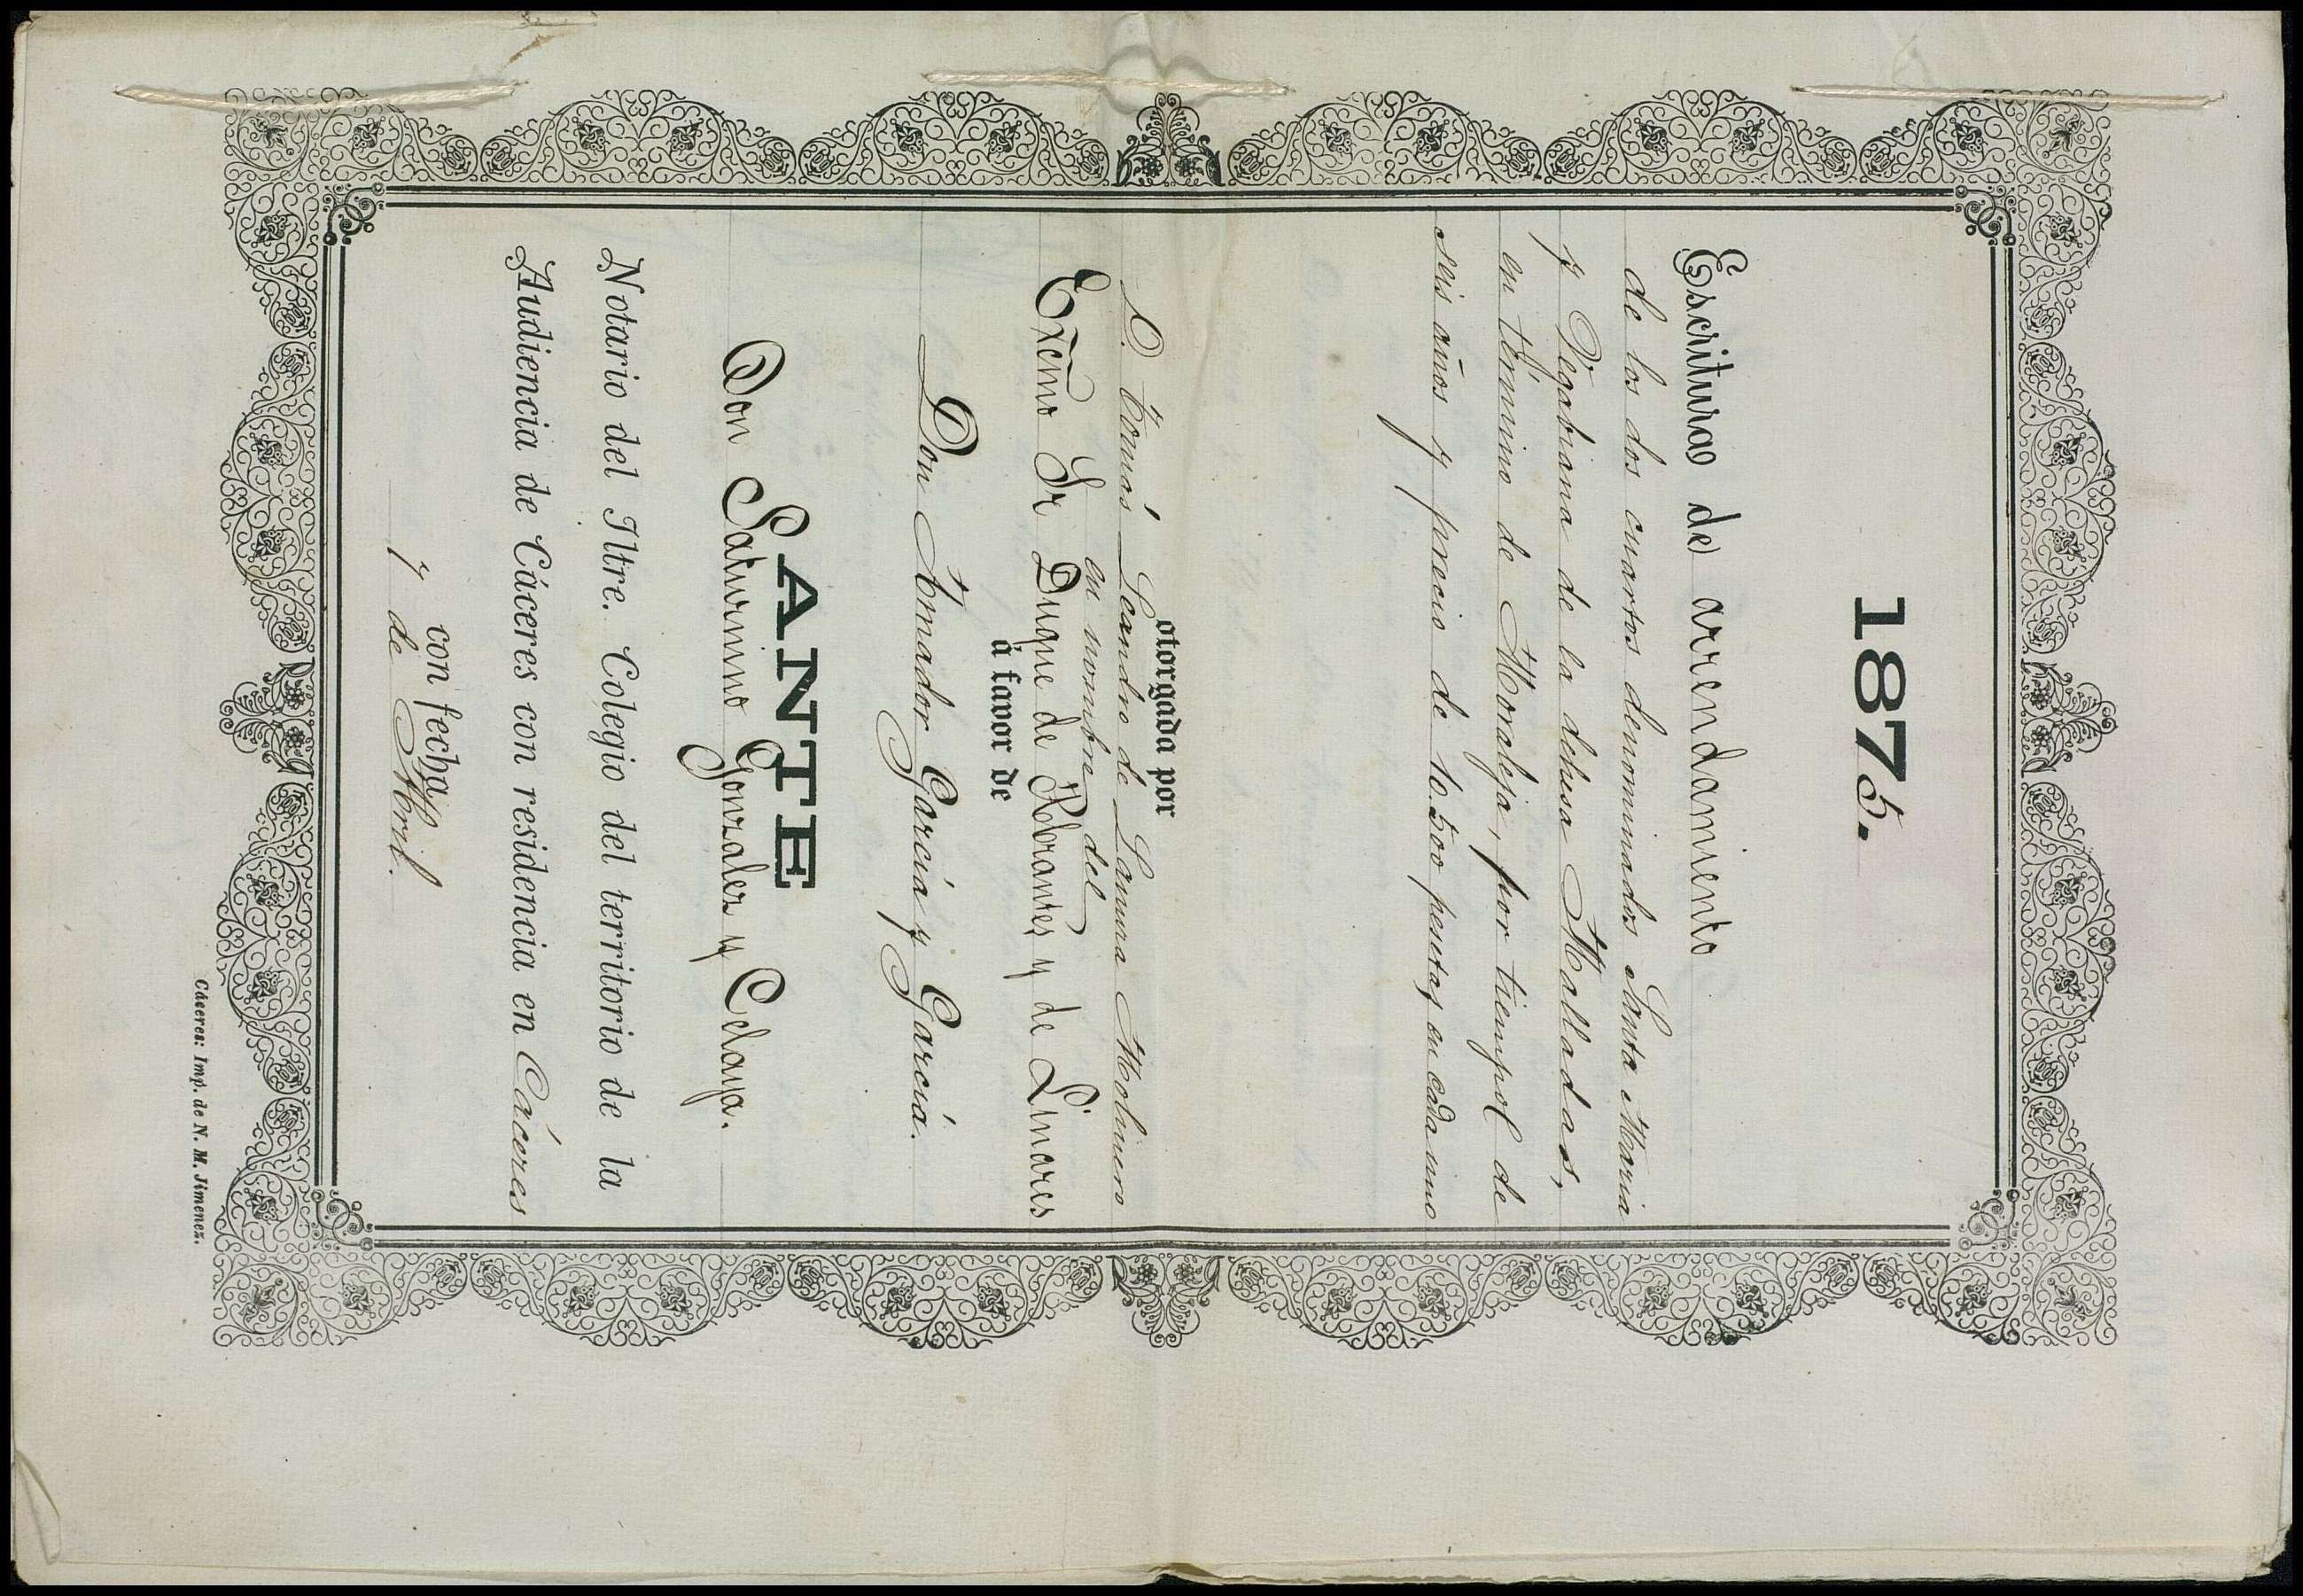 1875.
Escritura de arrendamiento
de los dos cuartos denominados Santa Maria
y Vegabiana de la dehesa Malladas,
en término de Moraleja, por tiempo de
seis años y precio de 10.500 pesetas en cada uno
otorgada por
D. Tomás Leandro de Lamura Molinero
en nombre del
Excmo Sr Duque de Abrantes y de Linares
á favor de
Don Amador García y García.
ANTE
Don Saturnino Gonzalez y Celaya.
Notario del Iltre. Colegio del territorio de la
Audiencia de Cáceres con residencia en Cáceres
con fecha
7 de Abril.
Cáceres: Imp. de N. M. Jimenez.